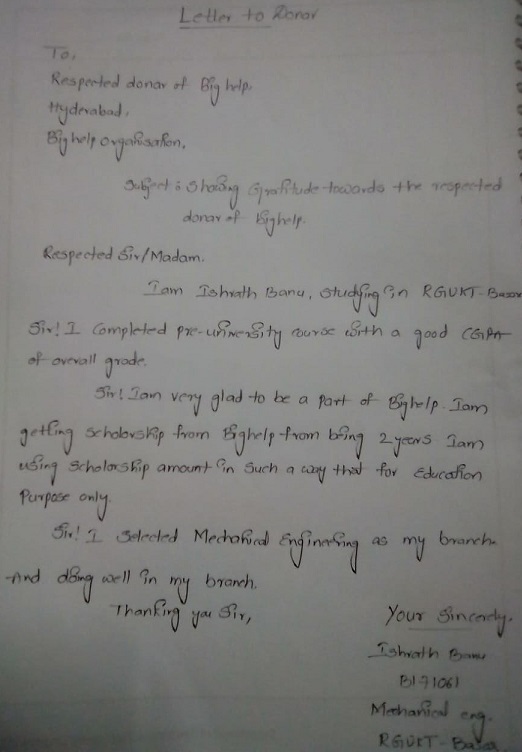 Letter to Donar
To,
Respected donar of Big help.
Hyderabad,
Big help organisation,
Subject : Showing Gratitude towards the respected
donar of Bighelp.
Respected Sir/Madam.
Iam Ishrath Banu, studying in RGUKT-Basar
Sir! I Completed pre-university course with a good CGPA
of overall grade.
Sir! Iam very glad to be a part of Bighelp. Iam
getting scholarship from Bighelp from bring 2 years Iam
using scholarship amount in such a way that for Education
Purpose only.
Sir! I Selected Mechanical Engineering as my branch.
And doing well in my branch.
Thanking you Sir,
Your Sincerely.
Ishrath Banu
B171061
Mechanical eng.
RGUKT-Basa